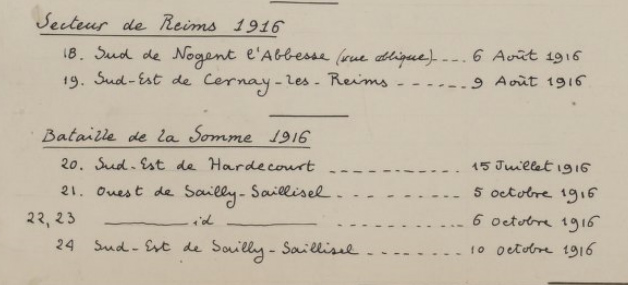 Secteur de Reims 1916
18. Sud de Nogent l'Abbesse (vue oblique) ---- 6 Août 1916
19. Sud-Est de Cernay-les-Reims ------- 9 Août 1916
Bataille de la Somme 1916
20. Sud-Est de Hardecourt ------------- 15 Juillet 1916
21. Ouest de Sailly-Saillisel ------------ 5 octobre 1916
22, 23 ———— id ———— ------------ 6 octobre 1916
24 Sud-Est de Sailly-Saillisel --------- 10 octobre 1916